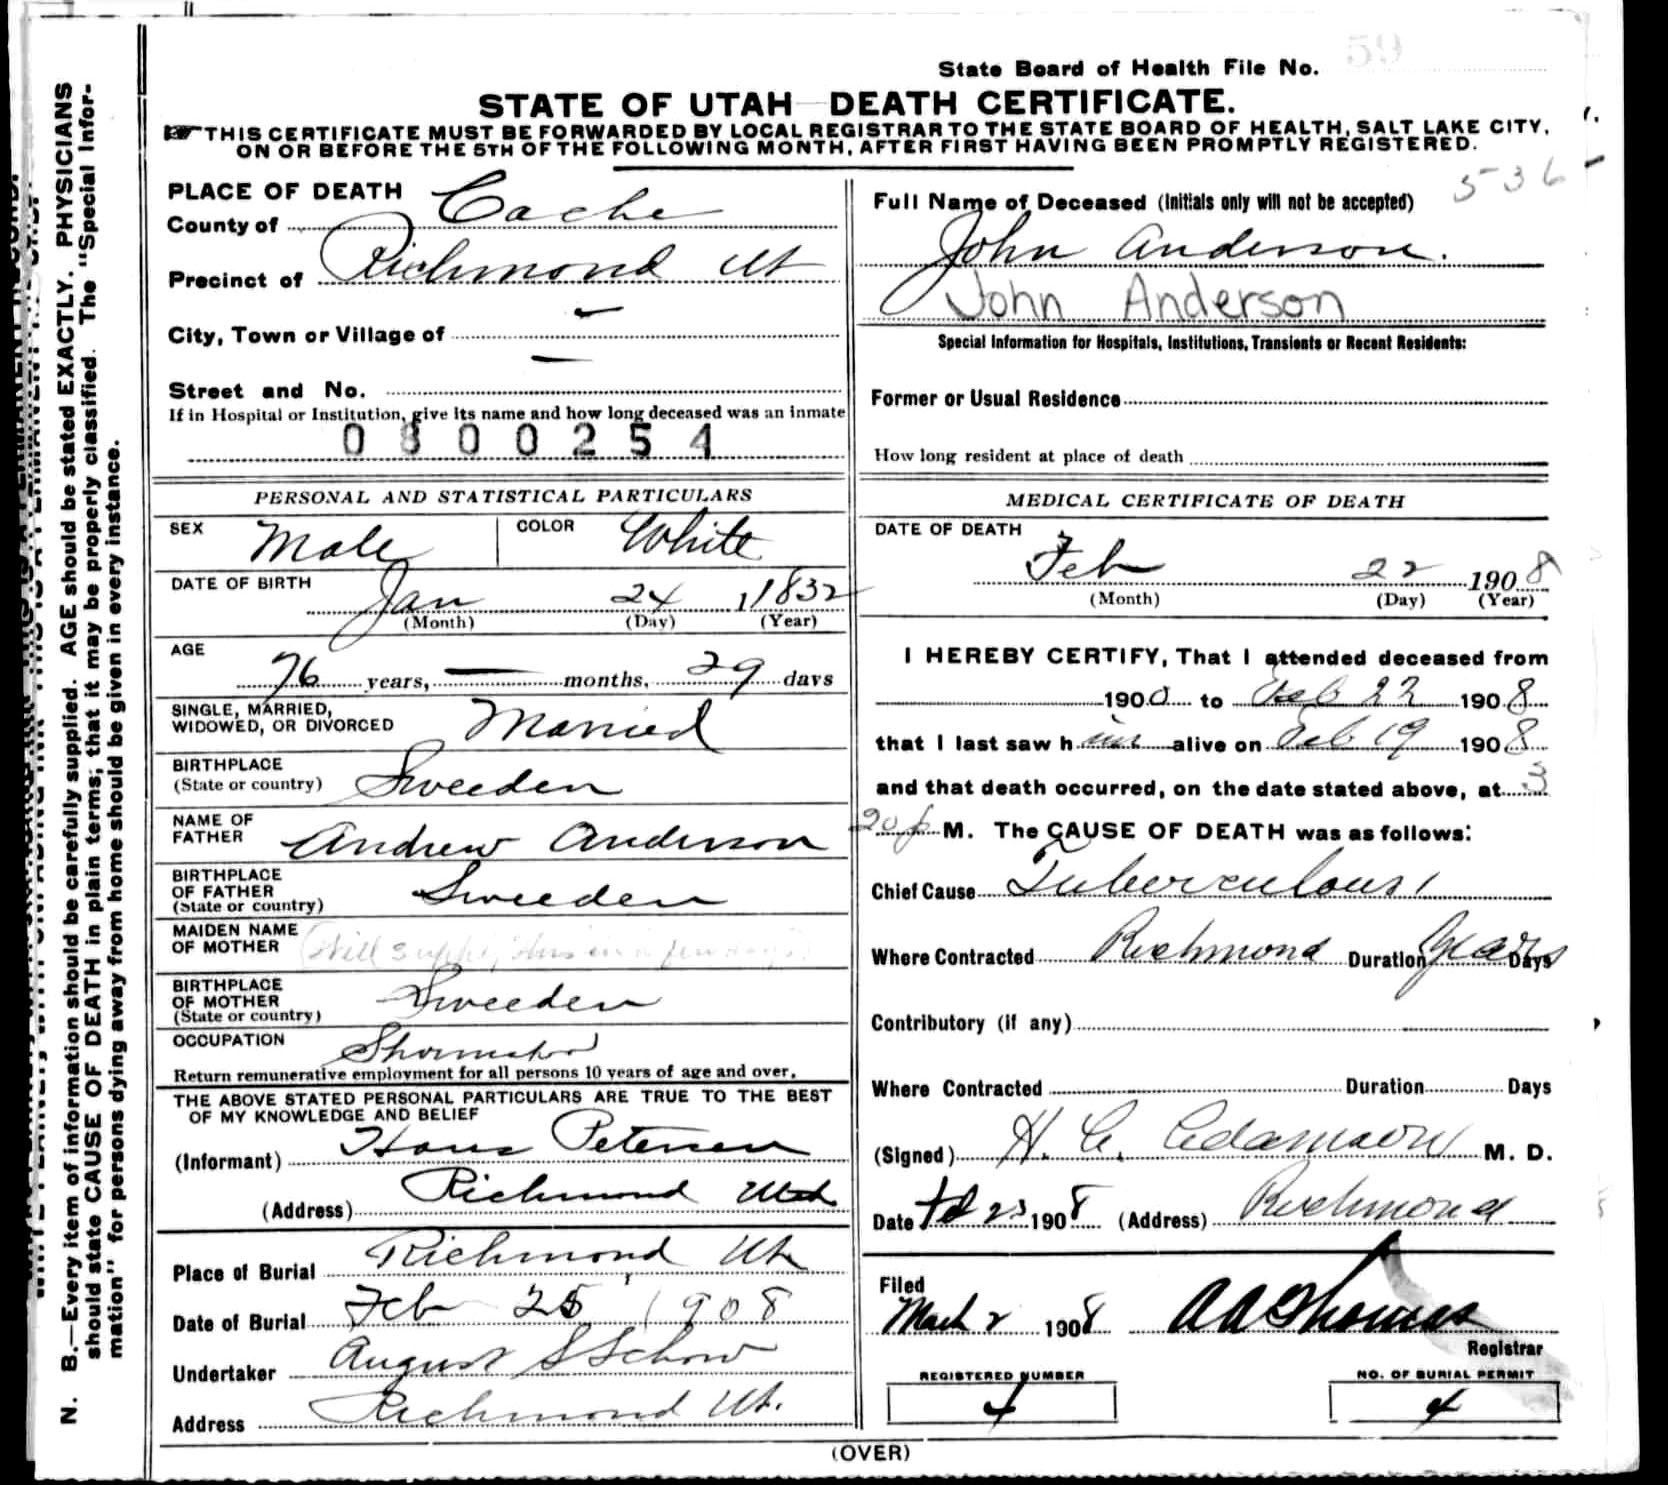 State Board of Health File No. 59
STATE OF UTAH DEATH CERTIFICATE.
THIS CERTIFICATE MUST BE FORWARDED BY LOCAL REGISTRAR TO THE STATE BOARD OF HEALTH, SALT LAKE CITY,
ON OR BEFORE THE 5TH OF THE FOLLOWING MONTH, AFTER FIRST HAVING BEEN PROMPTLY REGISTERED.
N. B.—Every item of information should be carefully supplied. AGE should be stated EXACTLY. PHYSICIANS
should state CAUSE OF DEATH in plain terms; that it may be properly classified. The "Special Infor-
mation" for persons dying away from home should be given in every instance.
PLACE OF DEATH
County of Cache
Precinct of Richmond Ut
City, Town or Village of —
Street and No. —
If in Hospital or Institution, give its name and how long deceased was an inmate
0800254
PERSONAL AND STATISTICAL PARTICULARS
SEX Male COLOR White
DATE OF BIRTH
Jan 24 1832
(Month) (Day) (Year)
AGE
76 years, — months, 29 days
SINGLE, MARRIED,
WIDOWED, OR DIVORCED Married
BIRTHPLACE
(State or country) Sweeden
NAME OF
FATHER Andrew Anderson
BIRTHPLACE
OF FATHER
(State or country) Sweeden
MAIDEN NAME
OF MOTHER (Will supply this in a few days)
BIRTHPLACE
OF MOTHER
(State or country) Sweeden
OCCUPATION Shoemaker
Return remunerative employment for all persons 10 years of age and over.
THE ABOVE STATED PERSONAL PARTICULARS ARE TRUE TO THE BEST
OF MY KNOWLEDGE AND BELIEF
(Informant) Hans Petersen
(Address) Richmond Utah
Place of Burial Richmond Ut
Date of Burial Feb 25 1908
Undertaker August S Schow
Address Richmond Ut.
536
Full Name of Deceased (Initials only will not be accepted)
John Anderson.
John Anderson
Special Information for Hospitals, Institutions, Transients or Recent Residents:
Former or Usual Residence
How long resident at place of death
MEDICAL CERTIFICATE OF DEATH
DATE OF DEATH
Feb 22 1908
(Month) (Day) (Year)
I HEREBY CERTIFY, That I attended deceased from
1900 to Feb 22 1908
that I last saw him alive on Feb 19 1908
and that death occurred, on the date stated above, at 3
20 p M. The CAUSE OF DEATH was as follows:
Chief Cause Tuberculousi
Where Contracted Richmond Duration Years Days
Contributory (if any)
Where Contracted Duration Days
(Signed) H. C. Adamson M. D.
Date Feb 23 1908 (Address) Richmond
Filed
March 2 1908 A A Thomas
Registrar
REGISTERED NUMBER
4
NO. OF BURIAL PERMIT
4
(OVER)